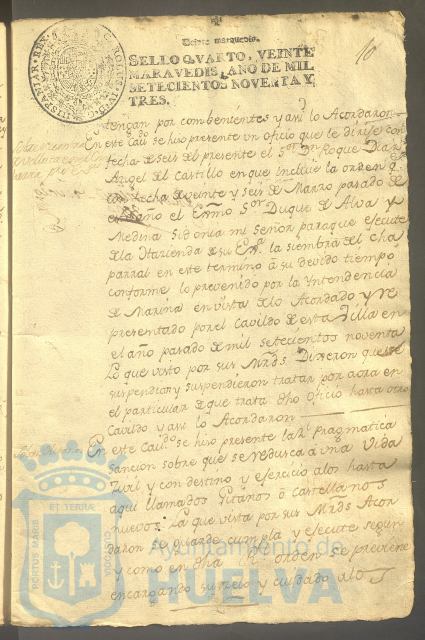 Veinte maravedis.
SELLO QVARTO, VEINTE
MARAVEDIS, AÑO DE MIL
SETECIENTOS NOVENTA Y
TRES.
10
tengan por combenientes y asi lo Acordaron
En este Cavdo se hiso presente un oficio que le dirije con
fecha de seis del presente el Sor Dn Roque Diaz
Angel del Castillo en que incluie la orden q.
con fecha de veinte y seis de Marzo pasado de
el año el Exmo Sor Duque de Alva y
Medina Sidonia mi Señor para que ejecute
de la Hazienda de su Exa la siembra del cha
parral en este termino a su devido tiempo
conforme lo prevenido por la Yntendencia
de Marina en vista de lo Acordado y re
presentado por el Cavildo de esta Villa en
el año pasado de mil setecientos noventa
Lo que visto por sus Mrds Dixeron que se
suspendion y suspendieron tratar por aora en
el particular de que trata dho oficio hasta otro
Cavildo y asi lo Acordaron
En este Cavdo se hiso presente la Rl pragmatica
Sancion sobre que se redusca a vna Vida
Zivil y con destino y ejercicio a los hasta
aqui llamados Gitanos o castellanos
nuevos. Lo que vista por sus Mrds Acor
daron se guarde cumpla y ejecute segun
y como en dha Rl orden se previene
encargando su zelo y cuidado a los
PORTUS MARIS
ET TERRAE
CUSTODIA
Ayuntamiento de
HUELVA